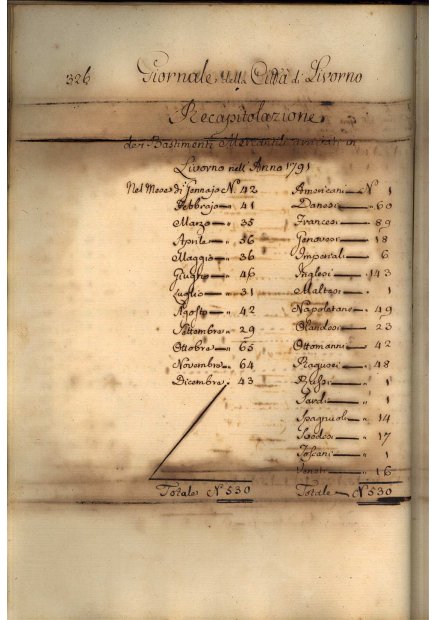 326 Giornale della Città di Livorno
Recapitolazione
dei Bastimenti Mercantili arrivati in
Livorno nell'Anno 1791
Nel Mese di Gennajo N. 42 Americani N 1
Febbrajo „ 41 Danesi „ 60
Marzo „ 35 Francesi „ 89
Aprile „ 56 Genovesi „ 18
Maggio „ 36 Imperiali „ 6
Giugno „ 46 Inglesi „ 143
Luglio „ 31 Maltesi „ 1
Agosto „ 42 Napoletani „ 49
Settembre „ 29 Olandesi „ 23
Ottobre „ 65 Ottomanni „ 42
Novembre „ 64 Ragusei „ 48
Dicembre „ 43 Russi „ 1
Sardi „ 1
Spagnuoli „ 14
Svedesi „ 17
Toscani „ 1
Veneti „ 16
Totale N 530 Totale N 530